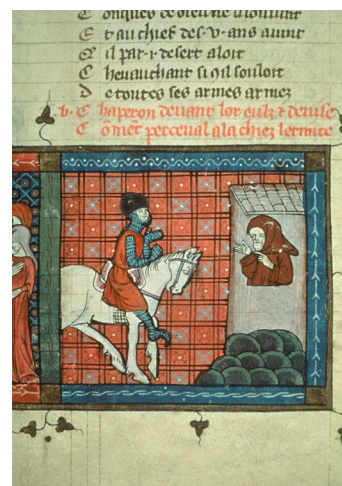 C onques de dieu ne li souuint
E t au chief des ·v· ans auint
Q̃ il par ·i· desert aloit
C heuauchant si ꝯ il souloit
D e toutes ses armes armez
C haperon deuant lor eulz ⁊ deuise
C õmẽt perceual ala chiez lermite